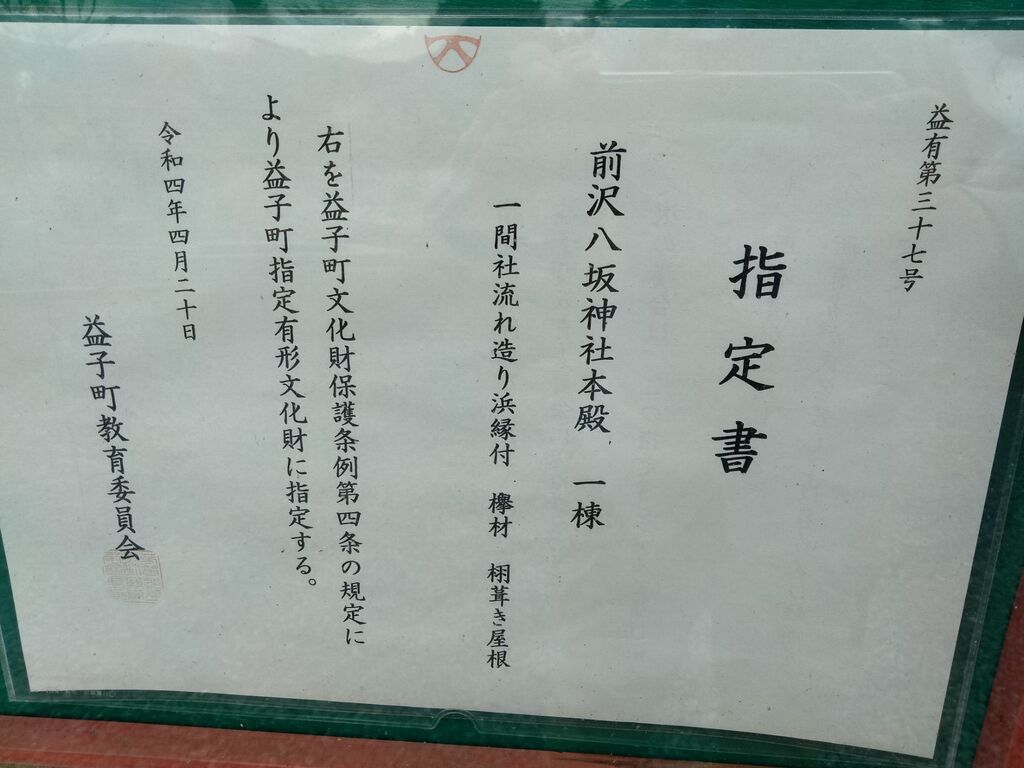 益有第三十七号
指定書
前沢八坂神社本殿 一棟
一間社流れ造り浜縁付 欅材 栩葺き屋根
右を益子町文化財保護条例第四条の規定に
より益子町指定有形文化財に指定する。
令和四年四月二十日
益子町教育委員会